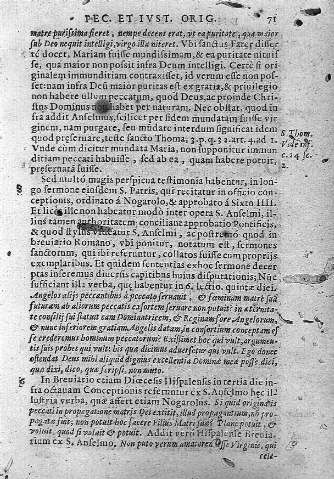 PEC. ET IVST. ORIG. 71
mater purissima fieret, nempe decent erat, ut ea puritate, qua maior
sub Deo nequit intelligi, virgo illa niteret. Vbi sanctus Pater diser-
tè docet, Mariam fuisse mundissimam, & ea puritate nituis-
se, qua maior non possit infra Deum intelligi. Certè si orig-
inalem immunditiam contraxisset, id verum esse non pos-
set: nam infra Deum maior puritas est ex gratia, & priuilegio
non habere illum peccatum, quod Deus, ac proinde Chri-
stus Dominus habet per naturam. Nec obstat, quod in-
fra addit Anselmus, scilicet per fidem mundatam fuisse vir-
ginem, nam purgare, seu mundare interdum significat idem
quod preseruare, teste sancto Thoma, 3. p. q. art. ad 1.
Vnde cum dicitur mundata Maria, non supponitur immun-
ditiam peccati habuisse, sed ab ea, quam habere potuit,
preseruata fuisse.
S. Thom.
Sed multò magis perspicua testimonia habentur, in lon-
go sermone eiusdem S. Patris, qui recitatur in officio con-
ceptionis, ordinato à Nogarolo, & approbato à Sixto IIII.
Et licet ille non habeatur modò inter opera S. Anselmi, il-
lius tamen authoritatem conciliant approbatio Pontificis,
& quod stylus redoleat S. Anselmi, ac postremò quod in
breuiario Romano, vbi ponitur, notatum est, sermones
sanctorum, qui ibi referuntur, collatos fuisse cum proprijs
exemplaribus. Et quidem sententias ex hoc sermone decer-
ptas inseremus diuersis capitibus huius disputationis. Nec
sufficiant illa verba, quę habentur in 6. lectio. quintę diei.
Angelos alijs peccantibus à peccato seruauit, & fœminam matrem suã
futuram ab aliorum peccatis exsortem seruare non potuit? in ęternita-
te consilij sui statuit eam Dominatricem, & Reginam fore Angelorum,
& nunc inferiorem gratiam Angelis datam, in consortium conceptam es-
se credemus hominum peccatorum? Existimet hoc qui vult, argumen-
tis suis probet qui vult: his quę dicimus aduersetur qui vult. Ego donec
ostendat Deus mihi aliquid dignius excellentia Dominę meę posse dici,
quę dixi, dico, quę scripsi, non muto.
In Breuiario etiam Diœcesis Hispalensis in tertia die in-
fra octauam Conceptionis referuntur ex S. Anselmo hęc il-
lustria verba, quę affert etiam Nogarolus. Si quid originalis
peccati in propagatione matris Dei extitit, illud propagantium, nõ pro-
pagatę fuit, non potuit hoc facere Filius Matri suę? Planè potuit, &
voluit, quod si voluit & potuit. Addit verò Hispalense Breuia-
rium ex S. Anselmo. Non puto verum amatorem esse Virginis, qui
cele-